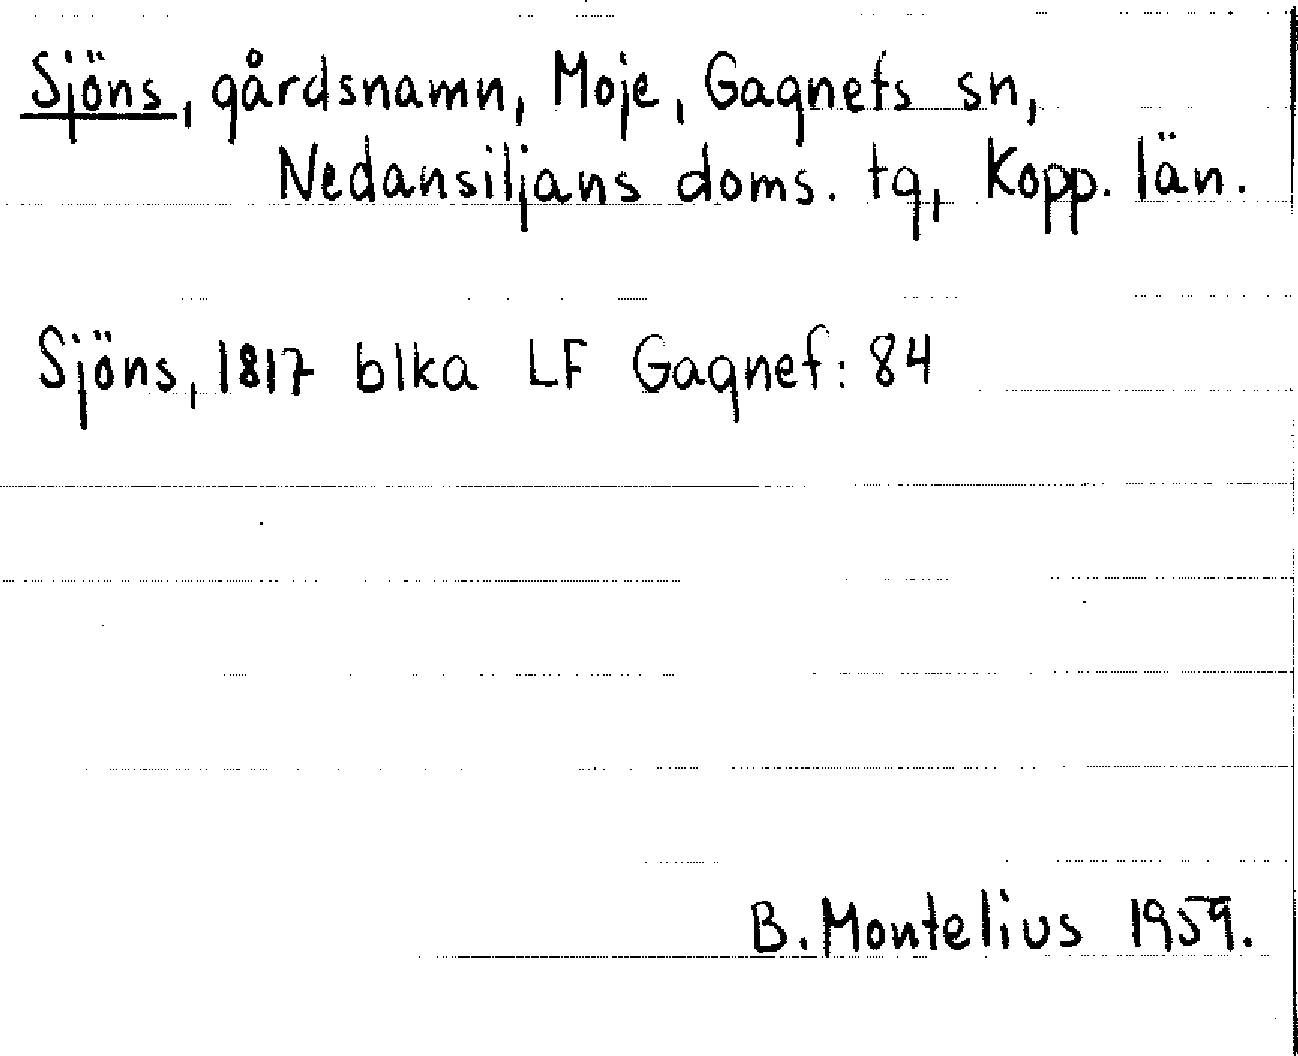 Sjöns, gårdsnamn, Moje, Gagnefs sn,
Nedansiljans doms. tg, Kopp. län.
Sjöns, 1817 blka LF Gagnef: 84
B. Montelius 1959.